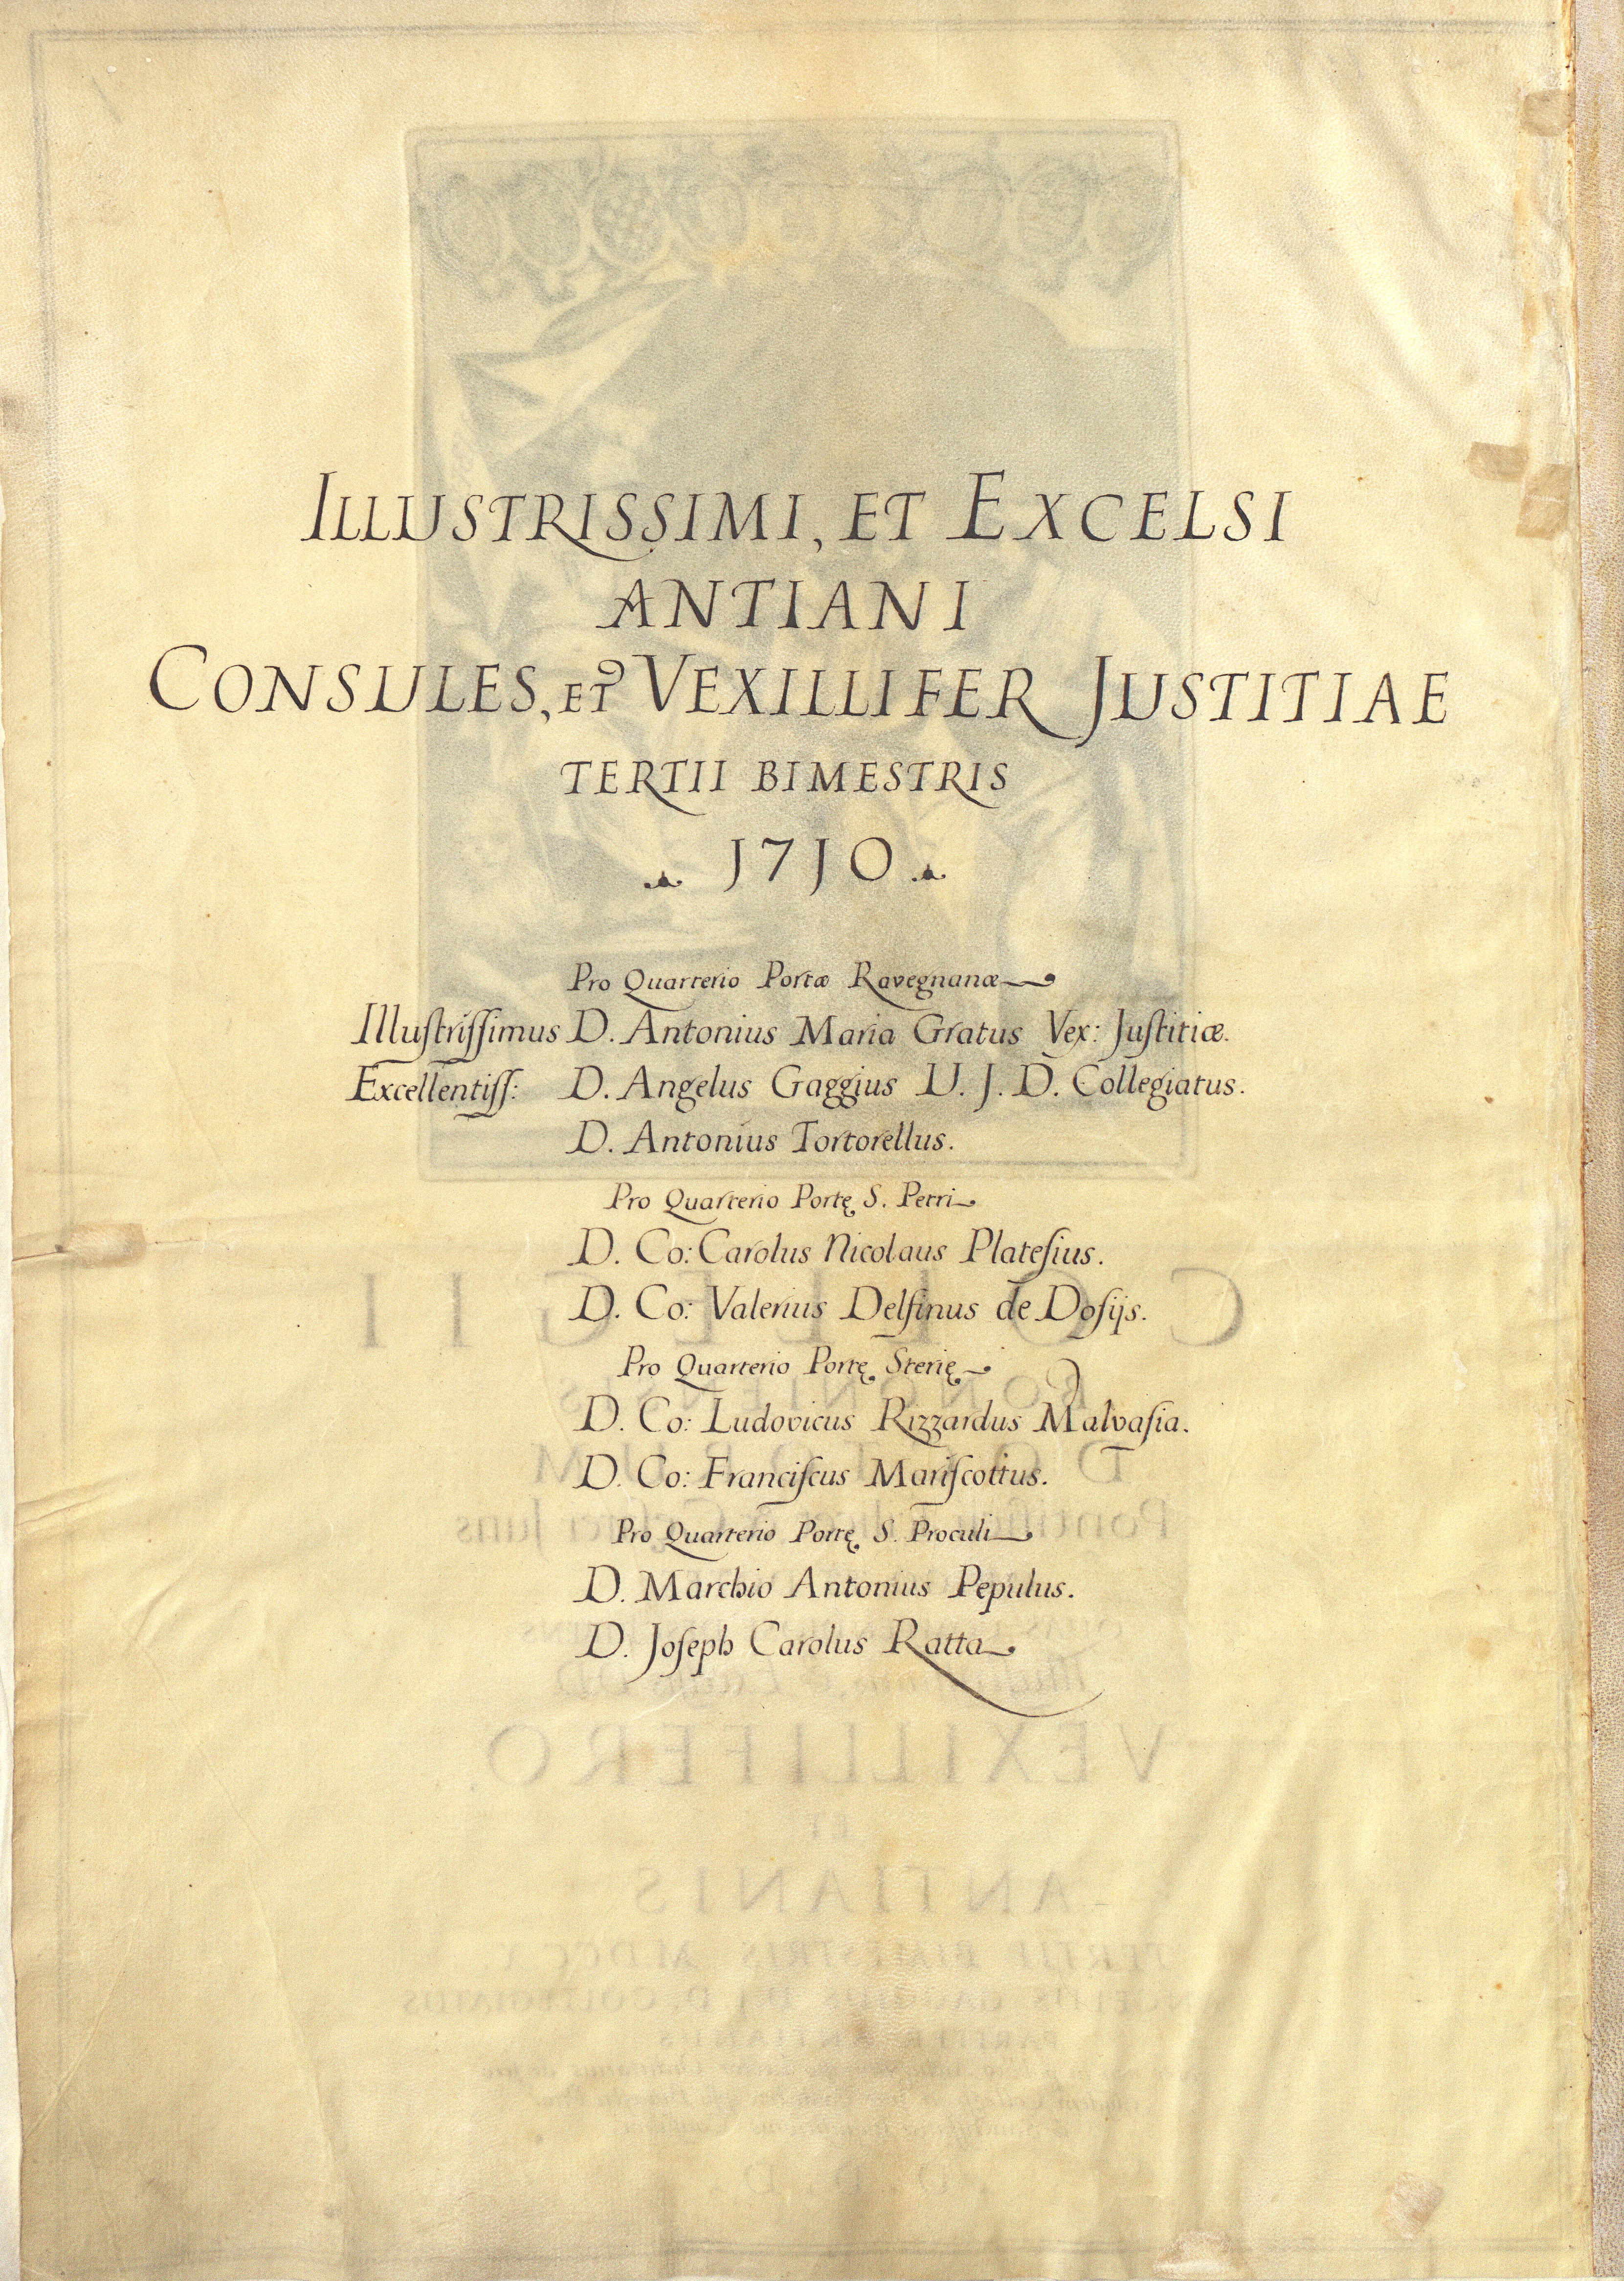 ILLUSTRISSIMI, ET EXCELSI
ANTIANI
CONSULES, ET VEXILLIFER JUSTITIAE
TERTII BIMESTRIS
1710
Pro Quarterio Portæ Ravegnanæ
Illustrissimus D. Antonius Maria Gratus Vex: Justitiæ.
Excellentiss: D. Angelus Gaggius U. J. D. Collegiatus.
D. Antonius Tortorellus.
Pro Quarterio Portę S. Petri
D. Co: Carolus Nicolaus Platesius.
D. Co: Valerius Delfinus de Dosijs.
Pro Quarterio Portę Sterię
D. Co: Ludovicus Rizzardus Malvasia.
D. Co: Franciscus Mariscottus.
Pro Quarterio Portę S. Proculi
D. Marchio Antonius Pepulus.
D. Joseph Carolus Ratta
COLLEGII
VEXILLIFERO
ET
ANTIANIS
TERTII BIMESTRIS MDCCX